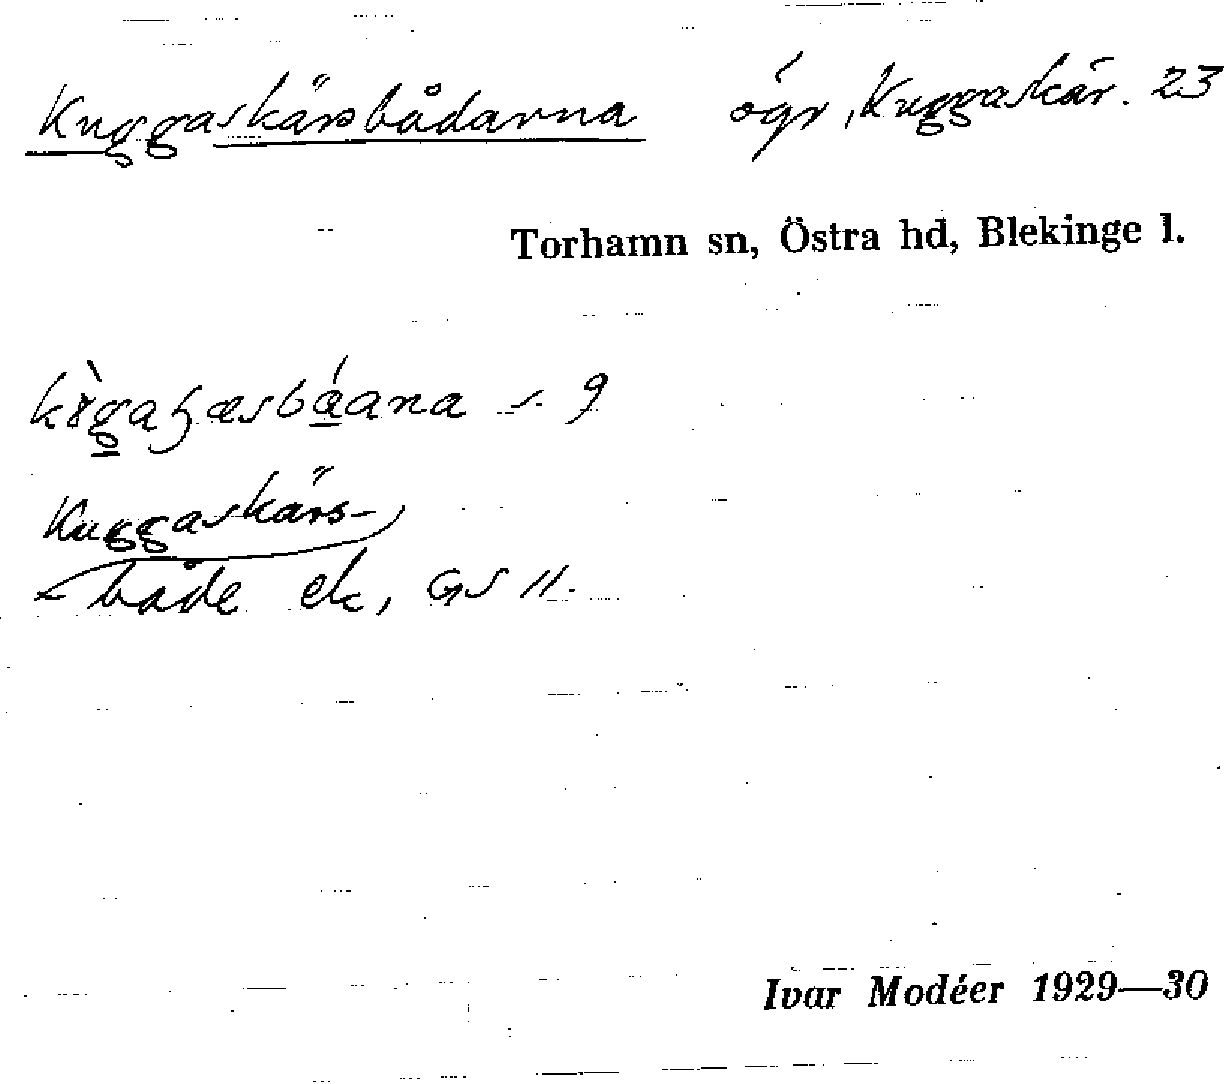 Kuggaskärsbådarna ögr, Kuggaskär. 23
Torhamn sn, Östra hd, Blekinge l.
9
Kuggaskärs-
både ek, GS 11.
Ivar Modéer 1929—30